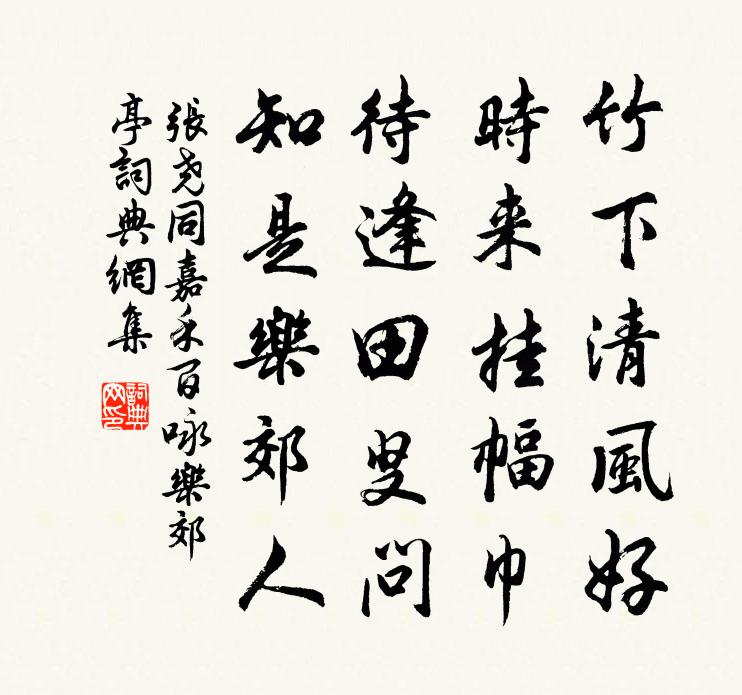 竹下清風好
時来挂幅巾
待逢田叟問
知是樂郊人
張尧同嘉禾百咏樂郊
亭詞典網集
詞典
网印